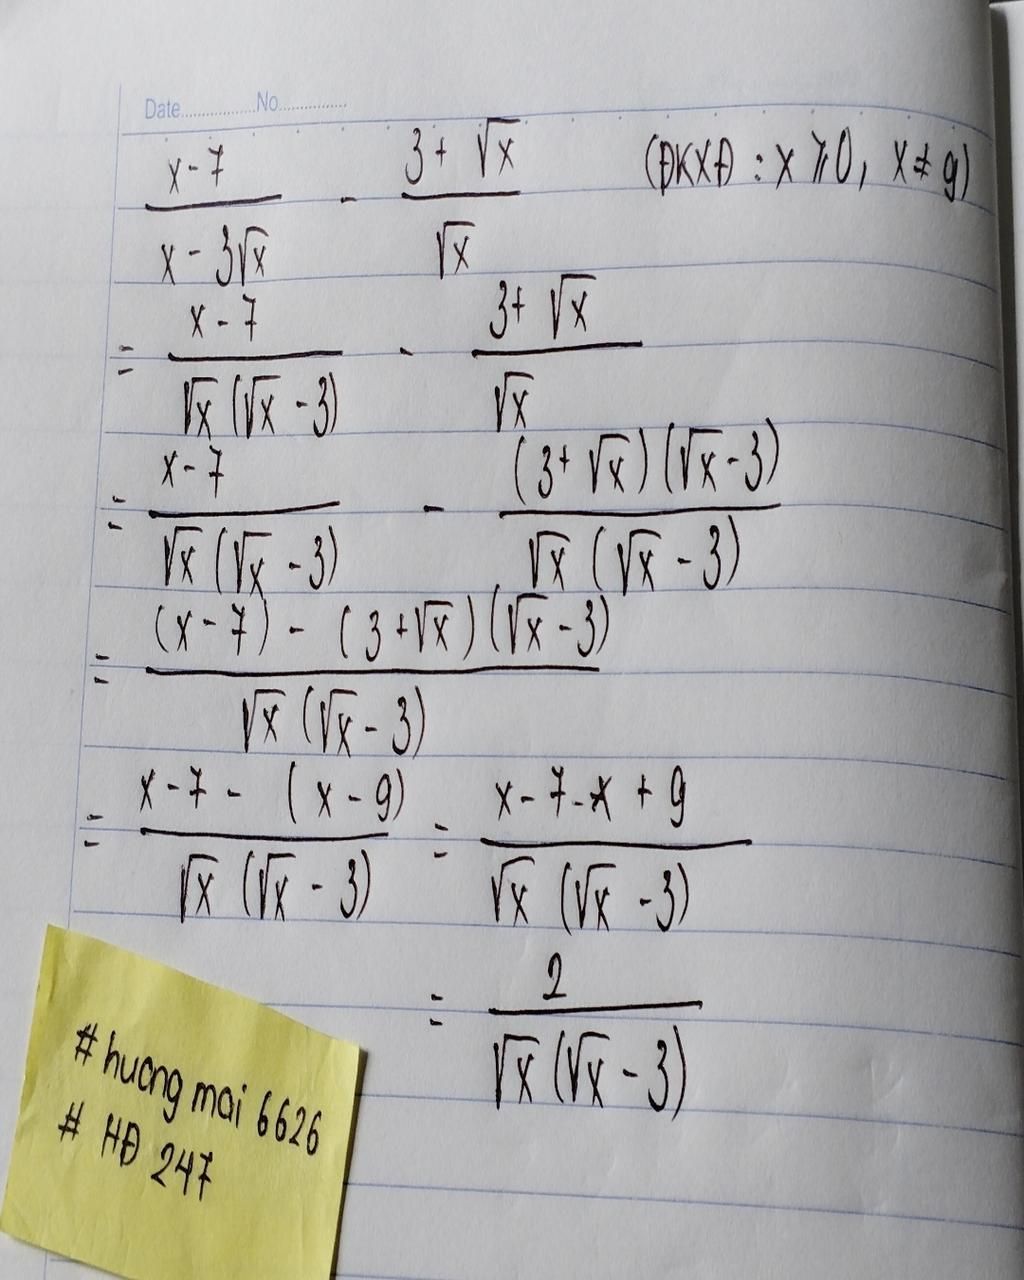 Date.................No.................
x - 7 / x - 3√x - 3 + √x / √x (ĐKXĐ : x ⩾ 0, x ≠ 9)
= x - 7 / √x (√x - 3) - 3 + √x / √x
= x - 7 / √x (√x - 3) - (3 + √x) (√x - 3) / √x (√x - 3)
= (x - 7) - (3 + √x) (√x - 3) / √x (√x - 3)
= x - 7 - (x - 9) / √x (√x - 3) = x - 7 - x + 9 / √x (√x - 3)
= 2 / √x (√x - 3)
# huong mai 6626
# HĐ 247